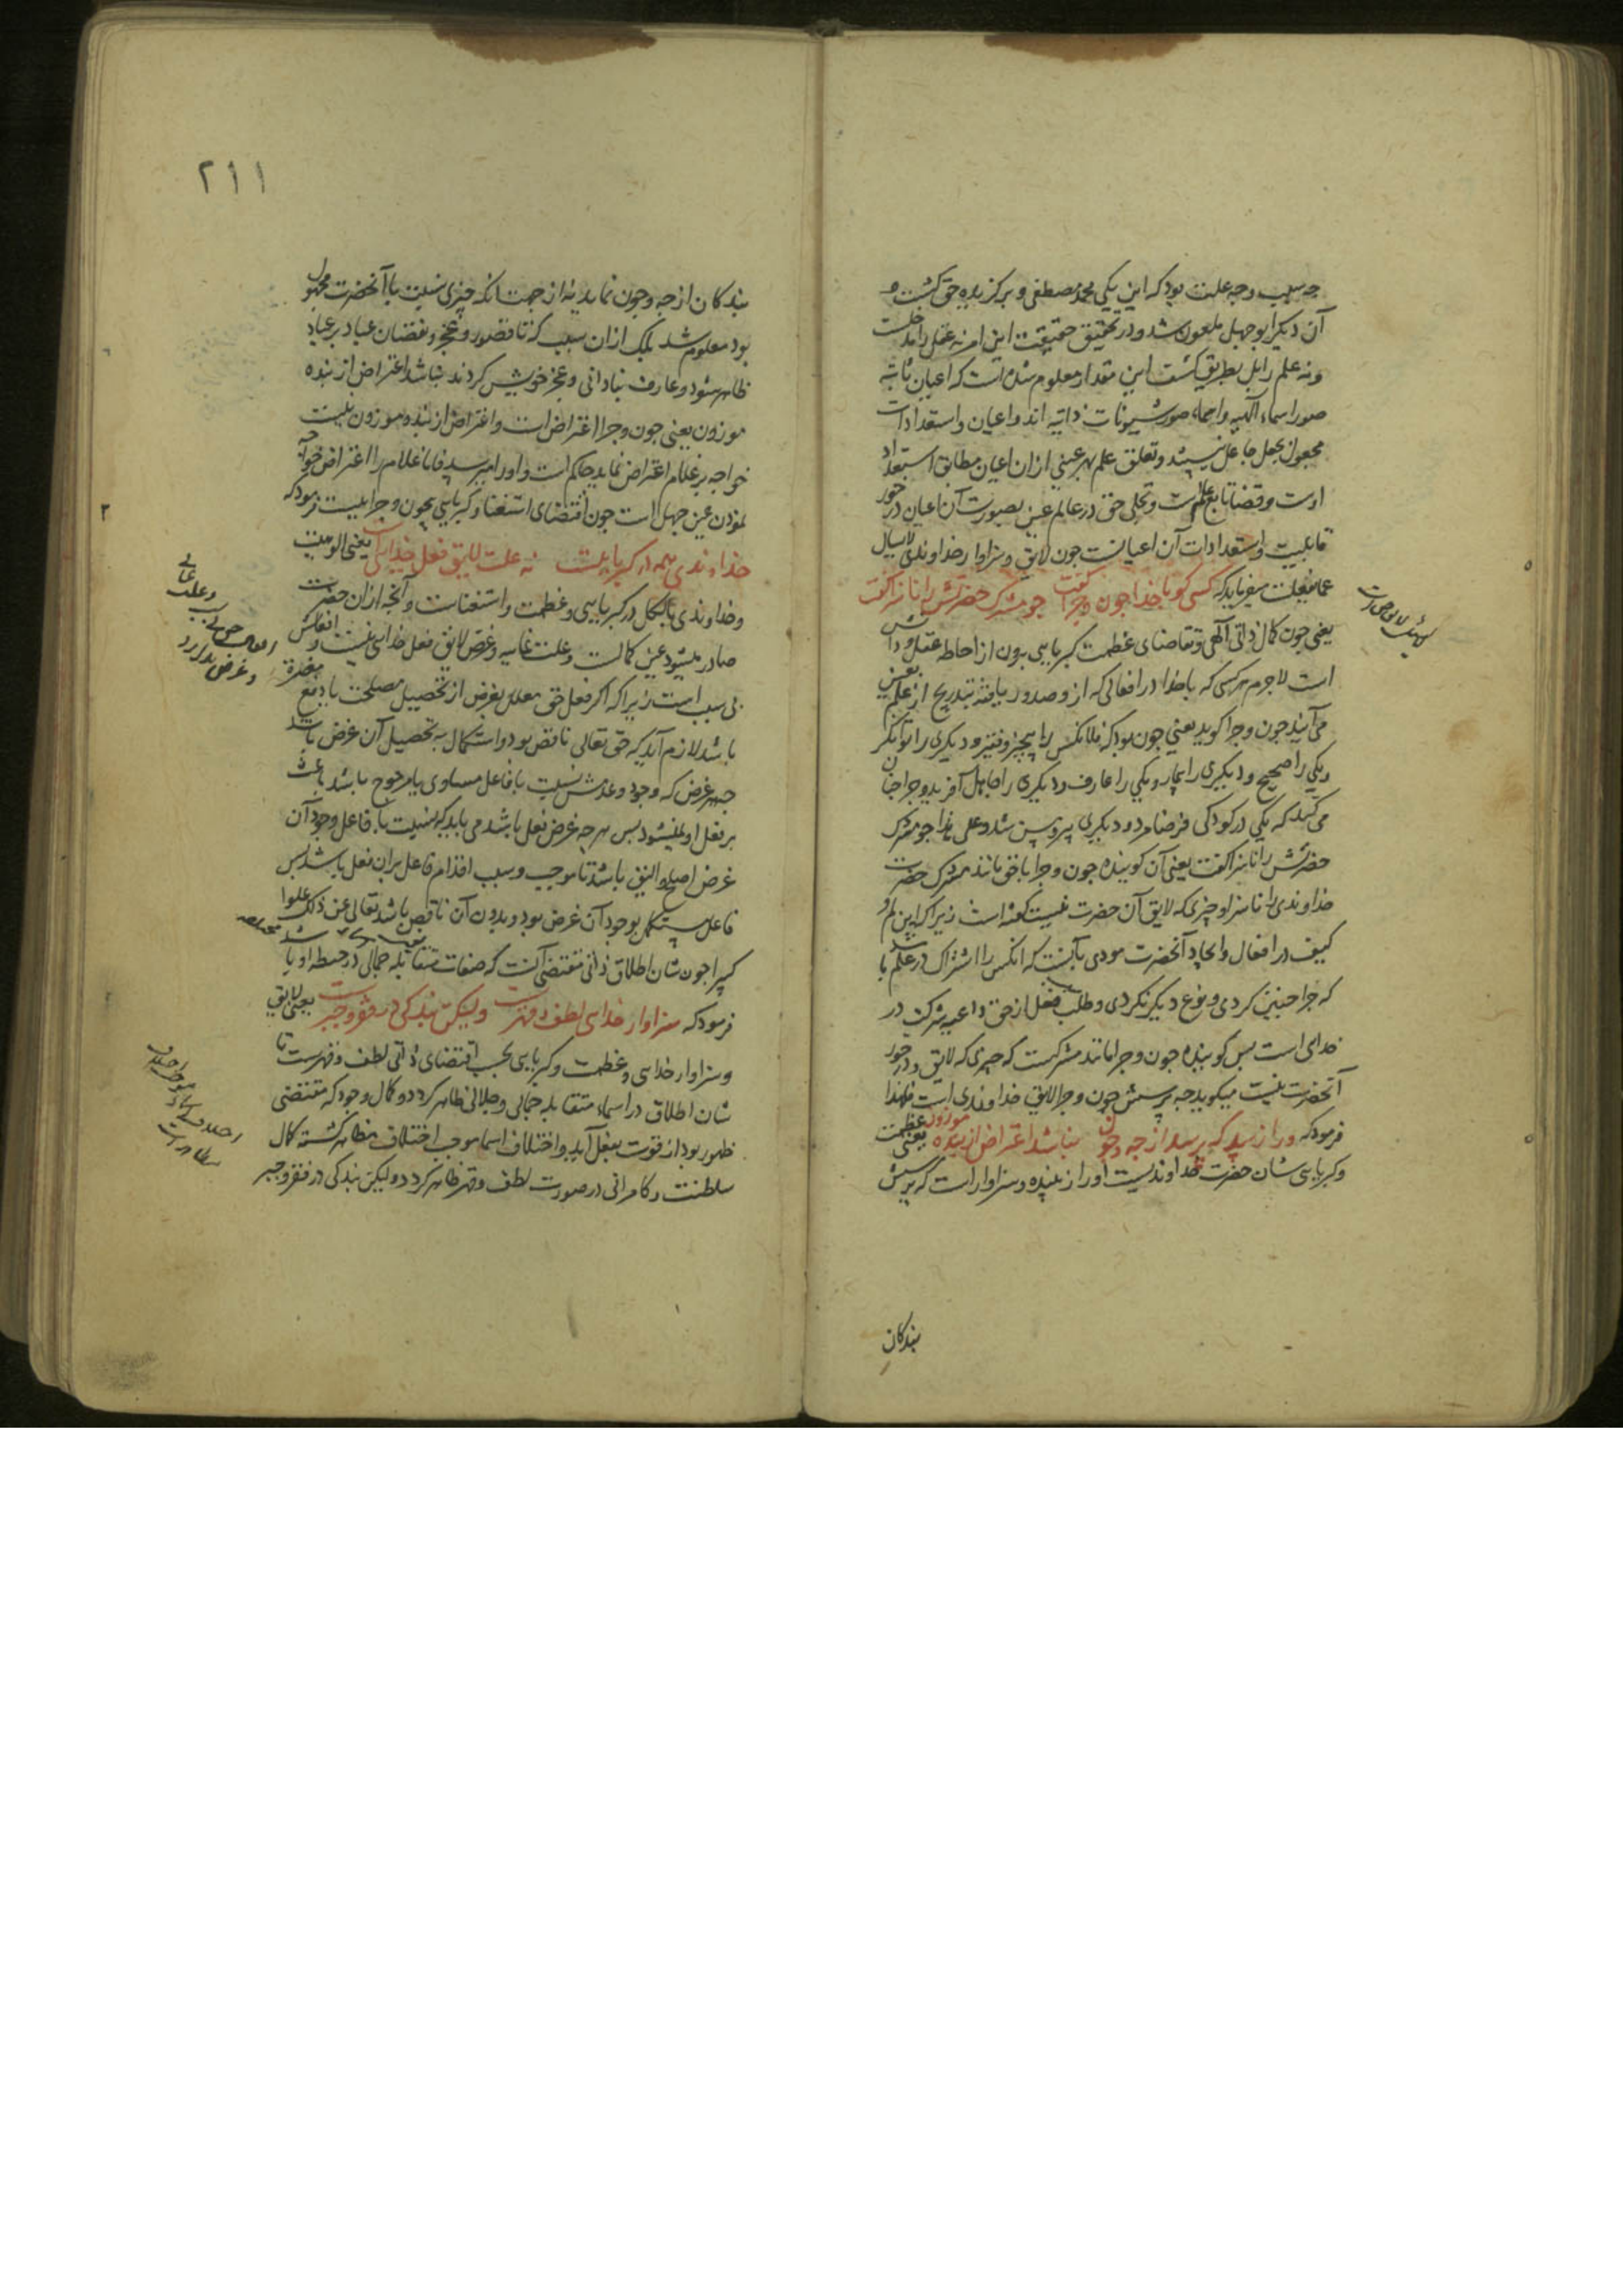 چه سبب و چه علت بود که این یکی محمد مصطفی و برگزیده حق گشت و
آن دیگر ابوجهل ملعون شد و در تحقیق حقیقت این امر نه عقل را مدخلست
و نه علم را بل بطریق کشف این مقدار معلوم شده است که اعیان ثابته
صور اسماء الهیه و اسماء صور شیونات ذاتیه اند و اعیان و استعدادات
مجعول بجعل جاعل نیستند و تعلق علم بهر عینی از ان اعیان مطابق استعداد
اوست و قضا تابع علم است و تجلی حق در عالم عین بصورت آن اعیان در خور
قابلیت و استعدادات آن اعیانست چون لایق و سزاوار خداوندی لایسال
عما یفعلست میفرماید که کسی کو با خدا چون و چرا گفت چو مشرک حضرتش را ناسزا گفت
یعنی چون کمال ذاتی الهی و تقاضای عظمت کبریایی برون از احاطه عقل و دانش
است لاجرم هر کسی که با خدا در افعالی که از و صدور یافته بتدریج از علم بعین
می آیند چون و چرا گوید یعنی چون بود که فلانکس را بیچیز و فقیر و دیگری را توانگر
و یکی را صحیح و دیگری را بیمار و یکی را عارف و دیگری را جاهل آفرید و چرا چنان
می کند که یکی در کودکی فرضا مرد و دیگری پیر و پس شد و علی هذا چو مشرک
حضرتش را ناسزا گفت یعنی آن گوینده چون و چرا با حق مانند مشرک حضرت
خداوندی را ناسزا و چیزی که لایق آن حضرت نیست گفته است زیرا که این لم و
کیف در افعال و ایجاد آنحضرت مودی بآنست که آنکس را اشتراک در علم باشد
که چرا چنین کردی و نوع دیگر نکردی و طلب فعل از حق داعیه شرکت در
خدای است پس گوینده چون و چرا مانند مشرکست که چیزی که لایق و در خور
آنحضرت نیست میگوید چه پرسش چون و چرا لایق خداوندی است فلهذا
فرمود که ورا زیبد که پرسد از چه و چون نباشد اعتراض از بنده موزون یعنی عظمت
و کبریایی شان حضرت خداوندیست او را زیبنده و سزاوار است که پرسش
بندکان
۲۱۱
بندکان از چه و چون نماید نه از جهت انکه چیزی نسبت با آنحضرت مجهول
بود معلوم شد بلک از ان سبب که تا قصور و عجز و نقصان عباد بر عباد
ظاهر شود و عارف بنادانی و عجز خویش کردند نباشد اعتراض از بنده
موزون یعنی چون و چرا اعتراض است و اعتراض از بنده موزون نیست
خواجه بر غلام اعتراض نماید حاکم است و او را میرسد فاما غلام را اعتراض خواجه
نمودن عین جهل است چون اقتضای استغنا و کبریایی بیچون و چراییست فرمود که
خداوندی همه در کبریاییست نه علت لایق فعل خداییست یعنی الوهیت
و خداوندی بالکل در کبریایی و عظمت و استغناست و آنچه از ان حضرت
صادر میشود عین کمالست و علت غاییه و غرض لایق فعل خدایی نیست و افعالش
بی سبب است زیرا که اگر فعل حق معلل بغرض از تحصیل مصلحت یا دفع مضرة
باشد لازم آید که حق تعالی ناقص بود و استکمال به تحصیل آن غرض باشد
چه هر غرض که وجود و عدمش نسبت با فاعل مساوی یا مرجوح باشد باعث
بر فعل او نمیشود پس هر چه غرض فعل باشد می باید که نسبت با فاعل وجود آن
غرض اصلح و الیق باشد تا موجب و سبب اقدام فاعل بران فعل باشد پس
فاعل مستکمل بوجود آن غرض بود و بدون آن ناقص باشد تعالی عن ذلک علوا
کبیرا چون شان اطلاق ذاتی مقتضی آنست که صفات متقابله جمالی در حیطه او باشد
فرمود که سزاوار خدایی لطف و قهرست ولیکن بندگی در فقر و جبرست یعنی لایق
و سزاوار خدایی و عظمت و کبریایی بحسب اقتضای ذاتی لطف و قهرست تا
شان اطلاق در اسماء متقابله جمالی و جلالی ظاهر کردد و کمال وجود که مقتضی
ظهور بود از قوت بفعل آید و اختلاف اسما موجب اختلاف مظاهر گشته کمال
سلطنت و کامرانی در صورت لطف و قهر ظاهر کردد و لیکن بندگی در فقر و جبر